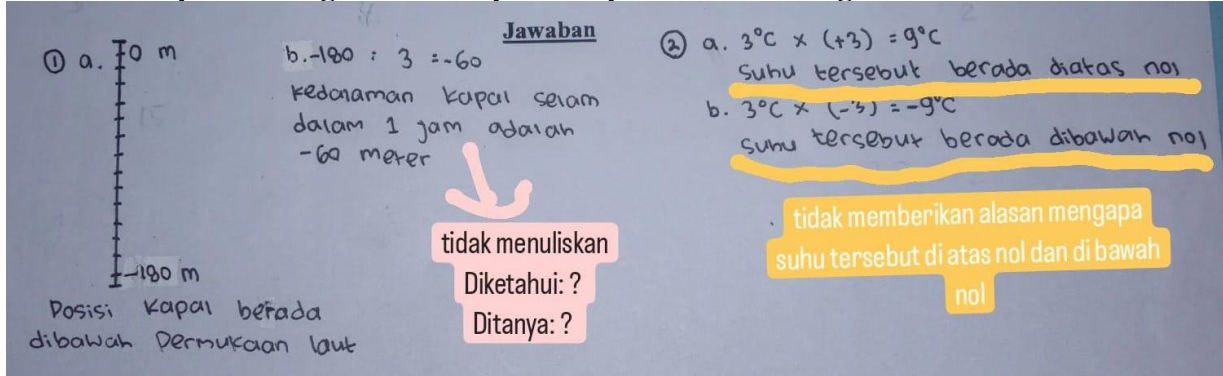 Jawaban
① a. 0 m
-180 m
Posisi kapal berada
dibawah Permukaan laut
b. -180 : 3 = -60
Kedalaman kapal selam
dalam 1 jam adalah
-60 meter
tidak menuliskan
Diketahui: ?
Ditanya: ?
② a. 3°C × (+3) = 9°C
Suhu tersebut berada diatas nol
b. 3°C × (-3) = -9°C
Suhu tersebut berada dibawah nol
tidak memberikan alasan mengapa
suhu tersebut di atas nol dan di bawah
nol